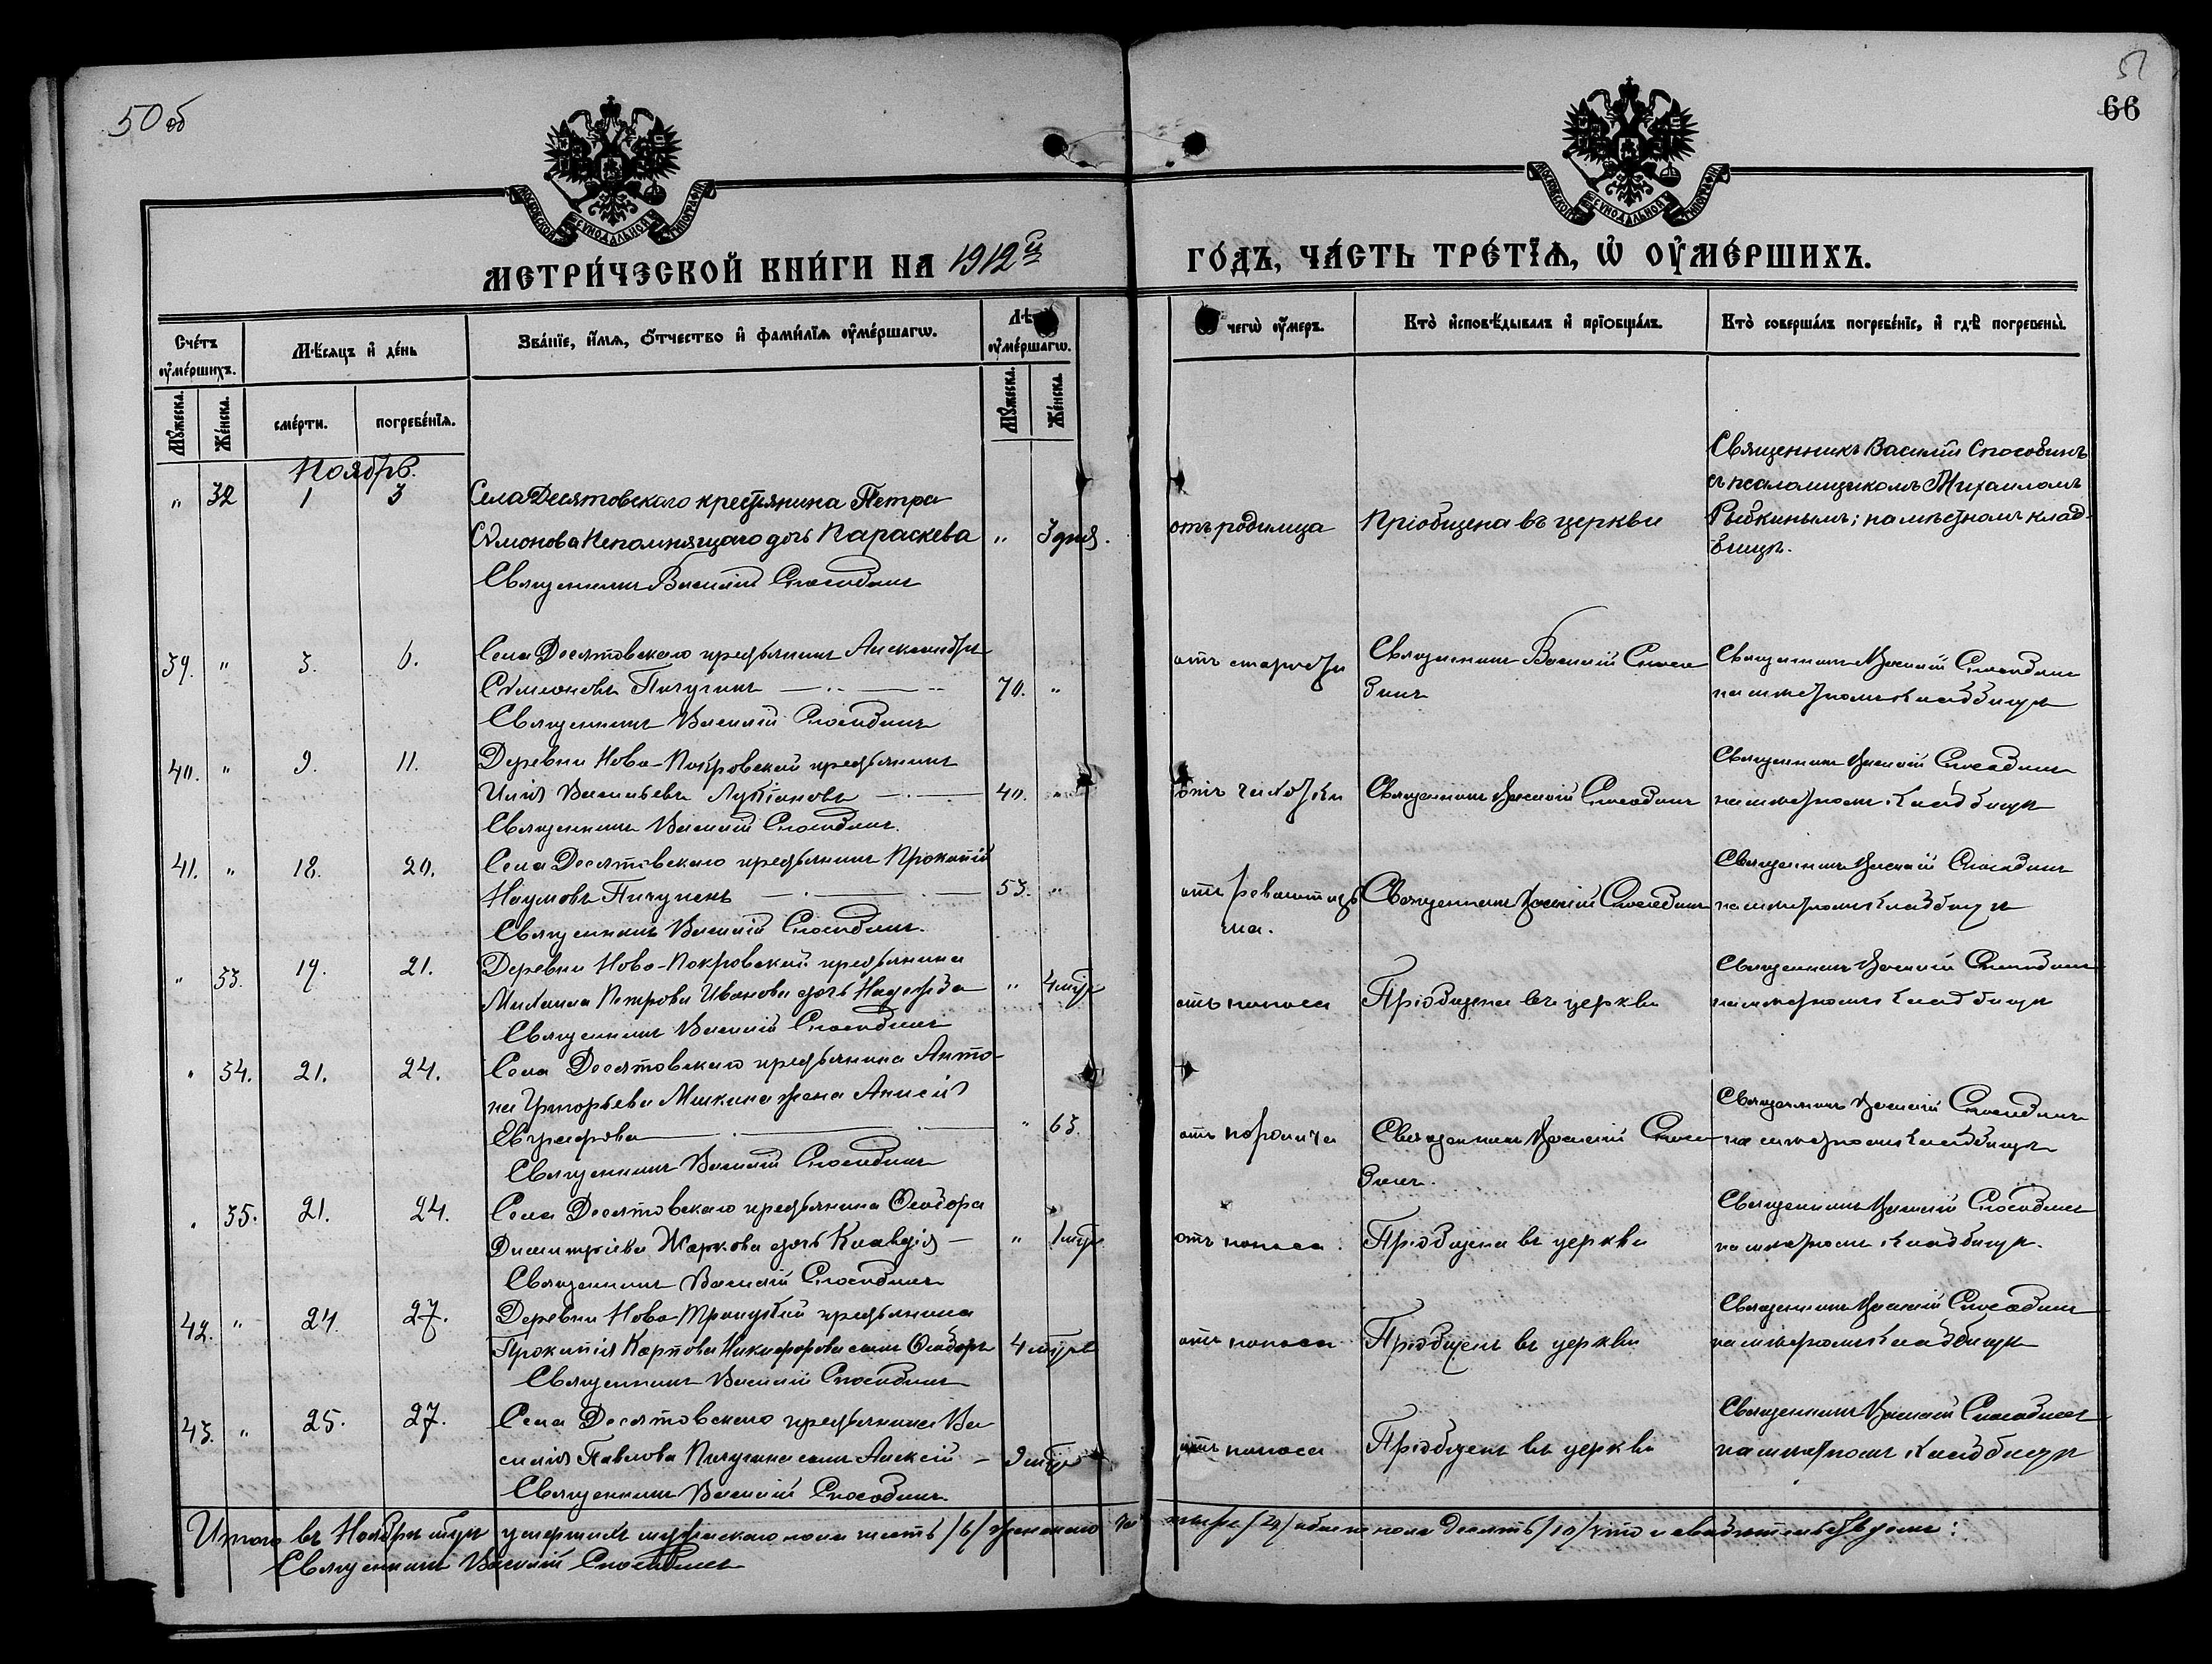 50 об
51
66
МОСКОВСКОЙ СѴНОДАЛЬНОЙ ТИПОГРАФІИ
МОСКОВСКОЙ СѴНОДАЛЬНОЙ ТИПОГРАФІИ
МЕТРИ́ЧЕСКОЙ КНИ́ГИ НА 1912й
ГО́ДЪ, ЧА́СТЬ ТРЕ́ТЇѦ, Ѡ҆ ОУ҆МЕ́РШИХЪ.
Сче́тъ оу҆ме́ршихъ.
Мѣ́сяцъ и҆ де́нь
Зва́нїе, и҆́мѧ, ѻ҆́тчество и҆ фами́лїѧ оу҆ме́ршагѡ.
Лѣ оу҆ме́ршагѡ.
чегѡ̀ оу҆́меръ.
Кто̀ и҆сповѣ́дывалъ и҆ прїѡбща́лъ.
Кто̀ соверша́лъ погребе́нїе, и҆ гдѣ̀ погребены̀.
Мꙋ́жеска.
Же́нска.
сме́рти.
погребе́нїѧ.
Мꙋ́жеска.
Же́нска.
Ноябрь.
" 32 1 3 Села Десятовскаго крестьянина Петра
Симонова Непомнящаго дочь Параскева " 3 дня.
Священникъ Василій Способинъ
отъ родимца Пріобщена въ церкви
Священникъ Василій Способинъ
съ псаломщикомъ Михаиломъ
Рыбкинымъ; на мѣстномъ клад-
бищѣ.
39. " 3. 6. Села Десятовскаго крестьянинъ Александръ
Симеоновъ Пичугинъ 70. "
Священникъ Василій Способинъ
отъ старости Священникъ Василій Способинъ
Священникъ Василій Способинъ
на мѣстномъ кладбищѣ
40. " 9. 11. Деревни Ново-Покровской крестьянинъ
Илія Васильевъ Лукіановъ 40. "
Священникъ Василій Способинъ.
отъ чахотки Священникъ Василій Способинъ
Священникъ Василій Способинъ
на мѣстномъ кладбищѣ
41. " 18. 20. Села Десятовскаго крестьянинъ Прокопій
Наумовъ Пичугинъ 53. "
Священникъ Василій Способинъ.
отъ ревматизма. Священникъ Василій Способинъ
Священникъ Василій Способинъ
на мѣстномъ кладбищѣ
" 33. 19. 21. Деревни Ново-Покровской крестьянина
Михаила Петрова Иванова дочь Надежда " 4 мѣс
Священникъ Василій Способинъ
отъ поноса Пріобщена въ церкви
Священникъ Василій Способинъ
на мѣстномъ кладбищѣ
" 34. 21. 24. Села Десятовскаго крестьянина Анто-
на Григорьева Мишкина жена Анисія
" 63.
Священникъ Василій Способинъ
отъ паралича Священникъ Василій Способинъ.
Священникъ Василій Способинъ
на мѣстномъ кладбищѣ
" 35. 21. 24. Села Десятовскаго крестьянина Ѳеодора
Димитріева Жаркова дочь Клавдія " 1 мѣс
Священникъ Василій Способинъ
отъ поноса. Пріобщена въ церкви
Священникъ Василій Способинъ
на мѣстномъ кладбищѣ.
42. " 24. 27. Деревни Ново-Троицкой крестьянина
Прокопія Карпова Никифорова сынъ Ѳеодоръ 4 мѣс
Священникъ Василій Способинъ
отъ поноса Пріобщенъ въ церкви
Священникъ Василій Способинъ
на мѣстномъ кладбищѣ
43. " 25. 27. Села Десятовскаго крестьянина Ва
силія Павлова Пичугина сынъ Алексій 9 мѣс
Священникъ Василій Способинъ.
отъ поноса Пріобщенъ въ церкви
Священникъ Василій Способинъ
на мѣстномъ кладбищѣ
Итого въ Ноябрѣ мѣсяцѣ умершихъ мужескаго пола шесть /6/ женскаго четыре /4/ обоего пола десять /10/ что и свидѣтельствуемъ:
Священникъ Василій Способинъ